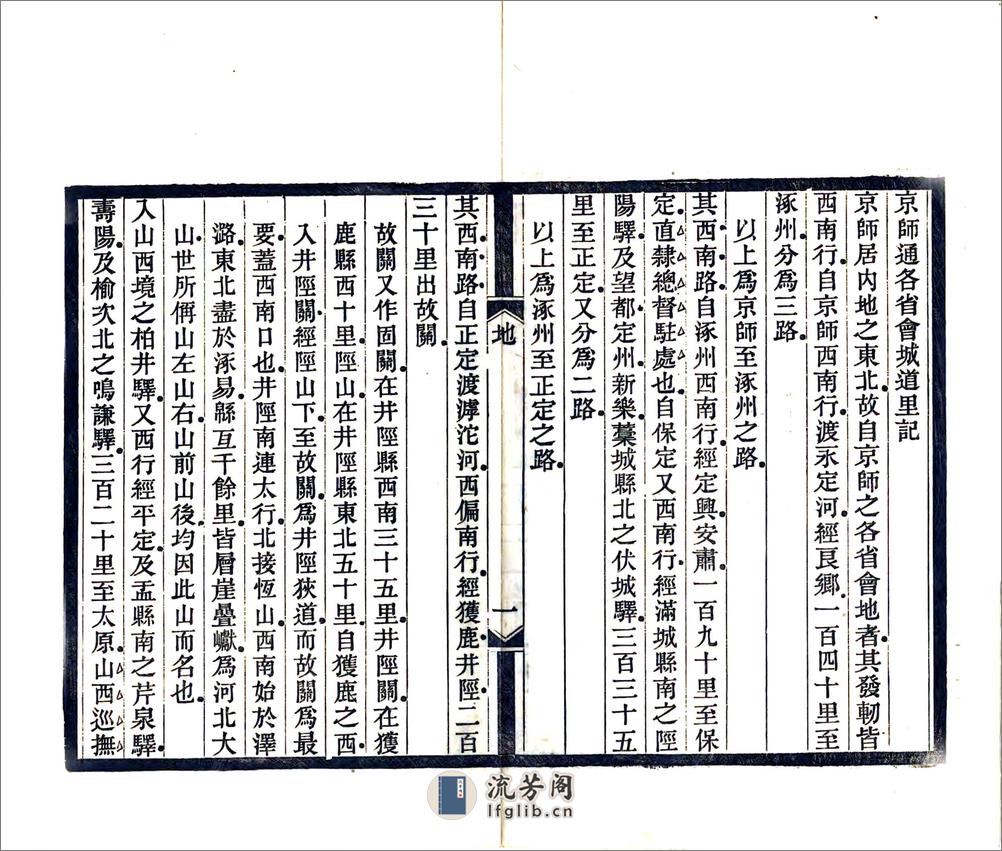 京師通各省會城道里記
京師居内地之東北故自京師之各省會地者其發軔皆
西南行自京師西南行渡永定河經良鄉一百四十里至
涿州分爲三路
以上爲京師至涿州之路
其西南路自涿州西南行經定興安肅一百九十里至保
定直隸總督駐處也自保定又西南行經滿城縣南之陘
陽驛及望都定州新樂藁城縣北之伏城驛三百三十五
里至正定又分爲二路
以上爲涿州至正定之路
地
一
其西南路自正定渡滹沱河西偏南行經獲鹿井陘二百
三十里出故關
故關又作固關在井陘縣西南三十五里井陘關在獲
鹿縣西十里陘山在井陘縣東北五十里自獲鹿之西
入井陘關經陘山下至故關爲井陘狹道而故關爲最
要蓋西南口也井陘南連太行北接恆山西南始於澤
潞東北盡於涿易緜亙千餘里皆層崖疊巘爲河北大
山世所偁山左山右山前山後均因此山而名也
入山西境之柏井驛又西行經平定及盂縣南之芹泉驛
壽陽及榆次北之鳴謙驛三百二十里至太原山西巡撫
流芳阁
lfglib.cn